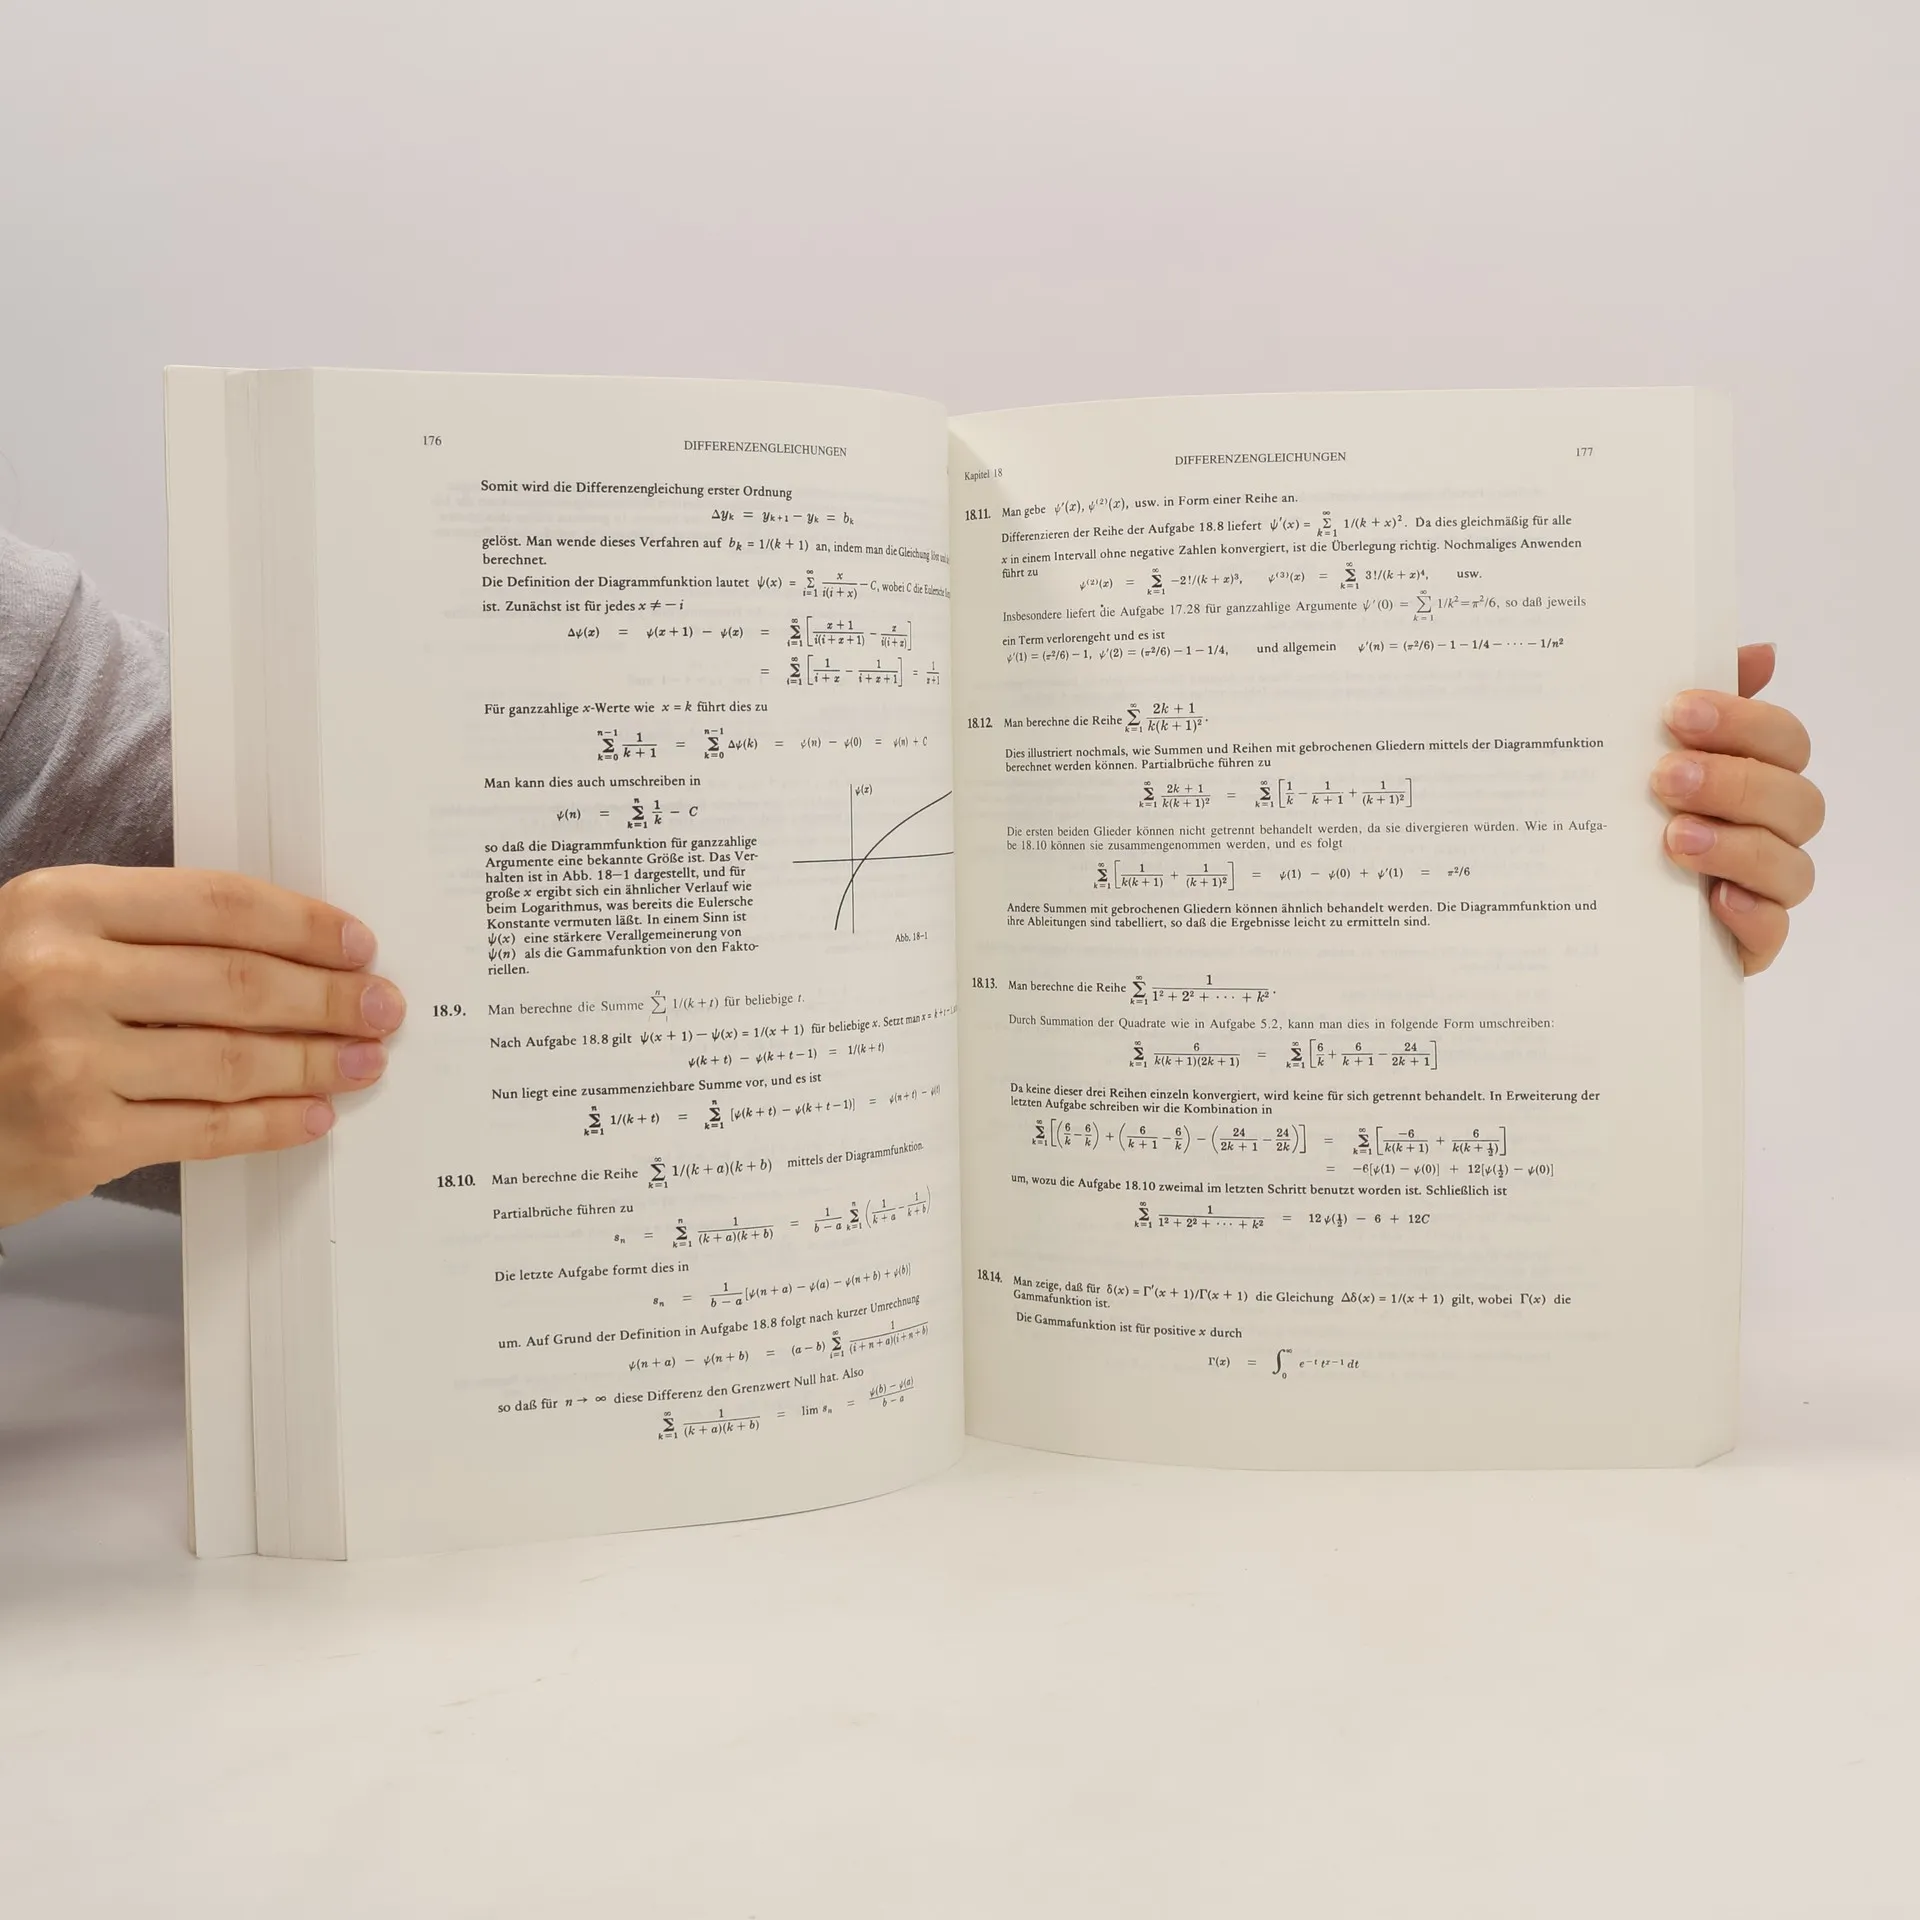 176
DIFFERENZENGLEICHUNGEN
Somit wird die Differenzengleichung erster Ordnung
Δyₖ = yₖ₊₁ − yₖ = bₖ
gelöst. Man wende dieses Verfahren auf bₖ = 1/(k + 1) an, indem man die Gleichung löst und
berechnet.
Die Definition der Diagrammfunktion lautet ψ(x) = ∑_{i=1}^{∞} x/(i(i + x)) − C, wobei C die Eulersche
ist. Zunächst ist für jedes x ≠ − i
Δψ(x) = ψ(x + 1) − ψ(x) = ∑_{i=1}^{∞} [(x + 1)/(i(i + x + 1)) − x/(i(i + x))]
= ∑_{i=1}^{∞} [1/(i + x) − 1/(i + x + 1)] = 1/(x + 1)
Für ganzzahlige x-Werte wie x = k führt dies zu
∑_{k=0}^{n−1} 1/(k + 1) = ∑_{k=0}^{n−1} Δψ(k) = ψ(n) − ψ(0) = ψ(n) + C
Man kann dies auch umschreiben in
ψ(n) = ∑_{k=1}^{n} 1/k − C
so daß die Diagrammfunktion für ganzzahlige
Argumente eine bekannte Größe ist. Das Ver-
halten ist in Abb. 18−1 dargestellt, und für
große x ergibt sich ein ähnlicher Verlauf wie
beim Logarithmus, was bereits die Eulersche
Konstante vermuten läßt. In einem Sinn ist
ψ(x) eine stärkere Verallgemeinerung von
ψ(n) als die Gammafunktion von den Fakto-
riellen.
ψ(x)
Abb. 18-1
18.9. Man berechne die Summe ∑_{1}^{n} 1/(k + t) für beliebige t.
Nach Aufgabe 18.8 gilt ψ(x + 1) − ψ(x) = 1/(x + 1) für beliebige x. Setzt man x = k + t − 1,
ψ(k + t) − ψ(k + t − 1) = 1/(k + t)
Nun liegt eine zusammenziehbare Summe vor, und es ist
∑_{k=1}^{n} 1/(k + t) = ∑_{k=1}^{n} [ψ(k + t) − ψ(k + t − 1)] = ψ(n + t) − ψ(t)
18.10. Man berechne die Reihe ∑_{k=1}^{∞} 1/(k + a)(k + b) mittels der Diagrammfunktion.
Partialbrüche führen zu
sₙ = ∑_{k=1}^{n} 1/((k + a)(k + b)) = 1/(b − a) ∑_{k=1}^{n} (1/(k + a) − 1/(k + b))
Die letzte Aufgabe formt dies in
sₙ = 1/(b − a) [ψ(n + a) − ψ(a) − ψ(n + b) + ψ(b)]
um. Auf Grund der Definition in Aufgabe 18.8 folgt nach kurzer Umrechnung
ψ(n + a) − ψ(n + b) = (a − b) ∑_{i=1}^{∞} 1/((i + n + a)(i + n + b))
so daß für n → ∞ diese Differenz den Grenzwert Null hat. Also
∑_{k=1}^{∞} 1/((k + a)(k + b)) = lim sₙ = (ψ(b) − ψ(a))/(b − a)
Kapitel 18
DIFFERENZENGLEICHUNGEN
177
18.11. Man gebe ψ′(x), ψ⁽²⁾(x), usw. in Form einer Reihe an.
Differenzieren der Reihe der Aufgabe 18.8 liefert ψ′(x) = ∑_{k=1}^{∞} 1/(k + x)². Da dies gleichmäßig für alle
x in einem Intervall ohne negative Zahlen konvergiert, ist die Überlegung richtig. Nochmaliges Anwenden
führt zu
ψ⁽²⁾(x) = ∑_{k=1}^{∞} −2!/(k + x)³, ψ⁽³⁾(x) = ∑_{k=1}^{∞} 3!/(k + x)⁴, usw.
Insbesondere liefert die Aufgabe 17.28 für ganzzahlige Argumente ψ′(0) = ∑_{k=1}^{∞} 1/k² = π²/6, so daß jeweils
ein Term verlorengeht und es ist
ψ′(1) = (π²/6) − 1, ψ′(2) = (π²/6) − 1 − 1/4, und allgemein ψ′(n) = (π²/6) − 1 − 1/4 − · · · − 1/n²
18.12. Man berechne die Reihe ∑_{k=1}^{∞} (2k + 1)/(k(k + 1)²).
Dies illustriert nochmals, wie Summen und Reihen mit gebrochenen Gliedern mittels der Diagrammfunktion
berechnet werden können. Partialbrüche führen zu
∑_{k=1}^{∞} (2k + 1)/(k(k + 1)²) = ∑_{k=1}^{∞} [1/k − 1/(k + 1) + 1/(k + 1)²]
Die ersten beiden Glieder können nicht getrennt behandelt werden, da sie divergieren würden. Wie in Aufga-
be 18.10 können sie zusammengenommen werden, und es folgt
∑_{k=1}^{∞} [1/(k(k + 1)) + 1/(k + 1)²] = ψ(1) − ψ(0) + ψ′(1) = π²/6
Andere Summen mit gebrochenen Gliedern können ähnlich behandelt werden. Die Diagrammfunktion und
ihre Ableitungen sind tabelliert, so daß die Ergebnisse leicht zu ermitteln sind.
18.13. Man berechne die Reihe ∑_{k=1}^{∞} 1/(1² + 2² + · · · + k²).
Durch Summation der Quadrate wie in Aufgabe 5.2, kann man dies in folgende Form umschreiben:
∑_{k=1}^{∞} 6/(k(k + 1)(2k + 1)) = ∑_{k=1}^{∞} [6/k + 6/(k + 1) − 24/(2k + 1)]
Da keine dieser drei Reihen einzeln konvergiert, wird keine für sich getrennt behandelt. In Erweiterung der
letzten Aufgabe schreiben wir die Kombination in
∑_{k=1}^{∞} [(6/k − 6/k) + (6/(k + 1) − 6/k) − (24/(2k + 1) − 24/2k)] = ∑_{k=1}^{∞} [−6/(k(k + 1)) + 6/(k(k + ½))]
= −6[ψ(1) − ψ(0)] + 12[ψ(½) − ψ(0)]
um, wozu die Aufgabe 18.10 zweimal im letzten Schritt benutzt worden ist. Schließlich ist
∑_{k=1}^{∞} 1/(1² + 2² + · · · + k²) = 12ψ(½) − 6 + 12C
18.14. Man zeige, daß für δ(x) = Γ′(x + 1)/Γ(x + 1) die Gleichung Δδ(x) = 1/(x + 1) gilt, wobei Γ(x) die
Gammafunktion ist.
Die Gammafunktion ist für positive x durch
Γ(x) = ∫₀^∞ e^{−t} t^{x−1} dt